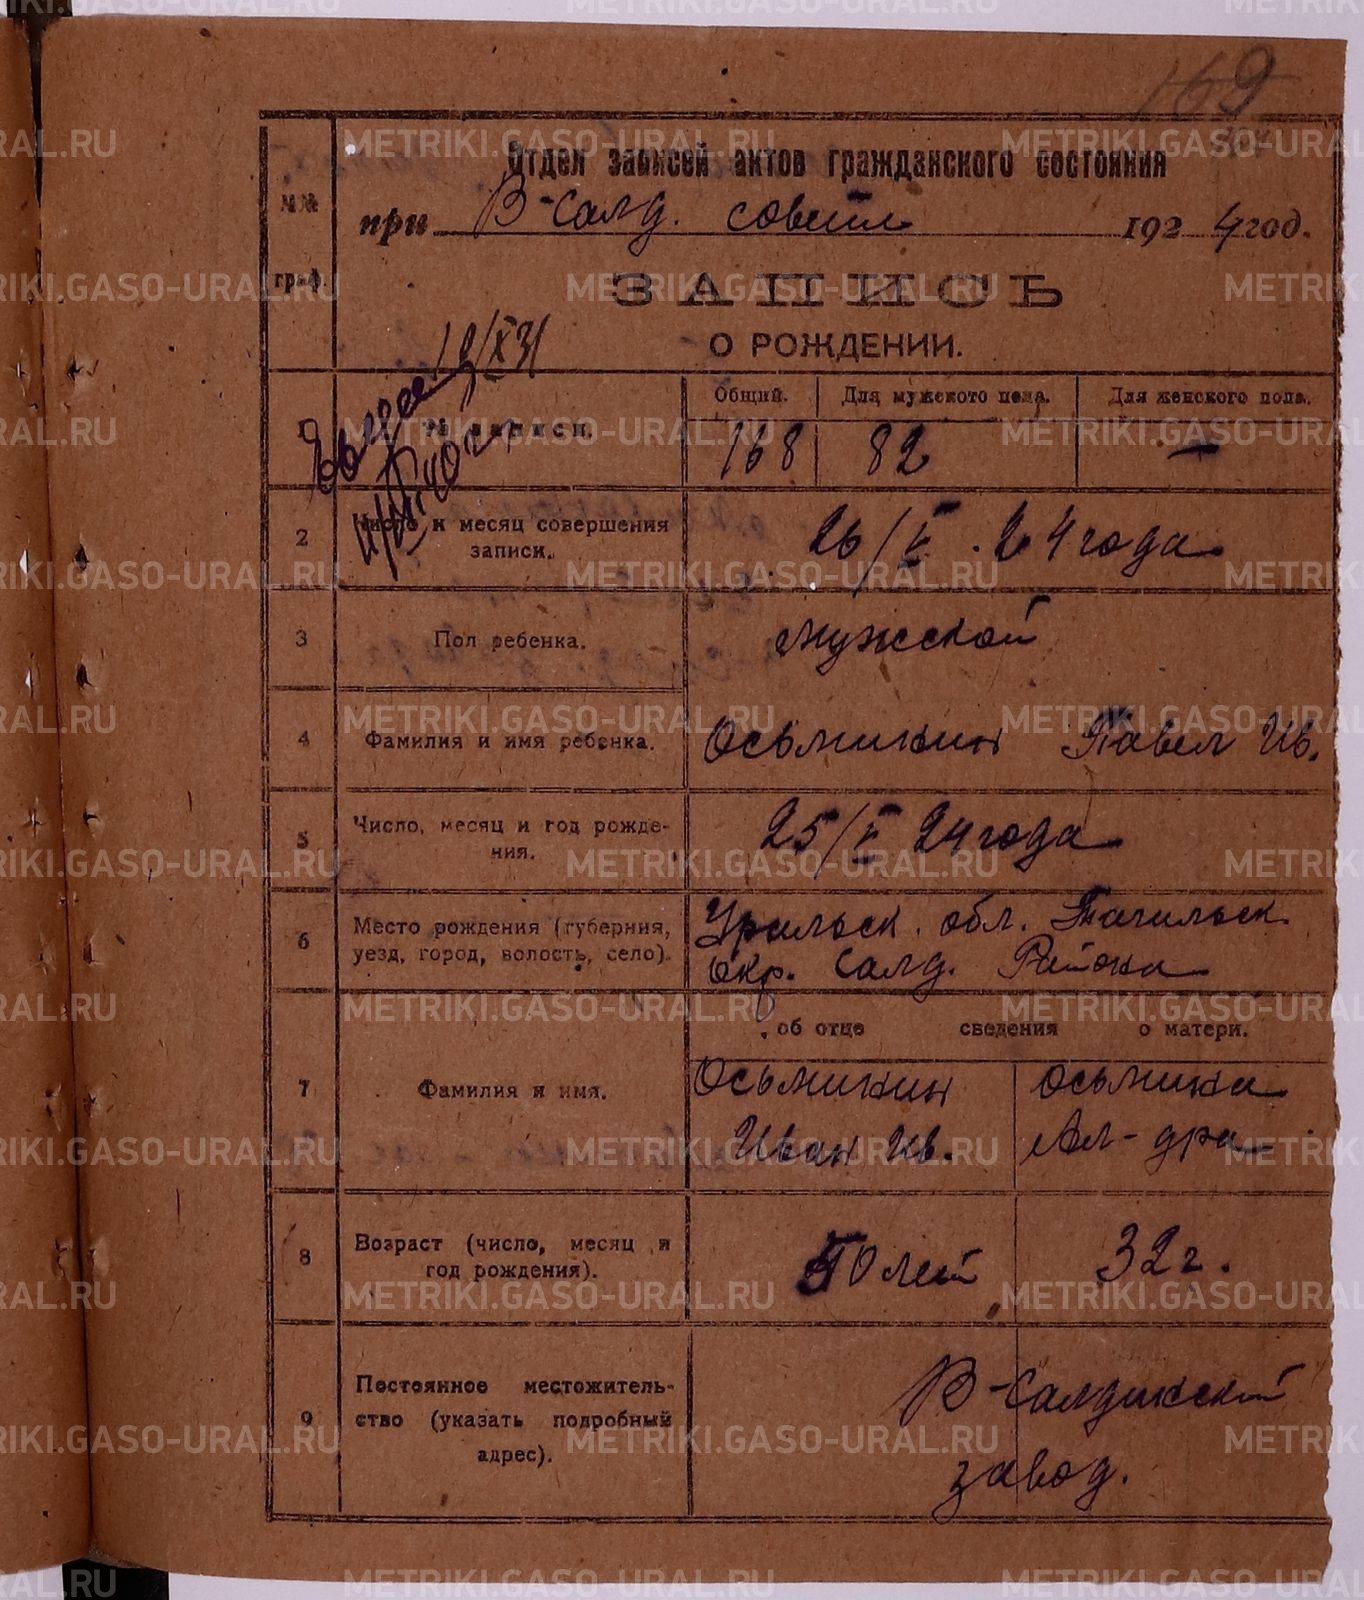 169
Отдел записей актов гражданского состояния
при В-Салд. совете 1924 год.
№№
граф.
ЗАПИСЬ
О РОЖДЕНИИ.
Общий. Для мужского пола. Для женского пола.
1 № записи. 168 82 —
2 Число и месяц совершения
записи. 26/V. 24 года
3 Пол ребенка. мужской
4 Фамилия и имя ребенка. Осьминин Павел Ив.
5 Число, месяц и год рожде-
ния. 25/V 24 года
6 Место рождения (губерния,
уезд, город, волость, село). Уральск. обл. Тагильск.
окр. Салд. Района
об отце сведения о матери.
7 Фамилия и имя. Осьминин Осьмина
Иван Ив. Ал-дра
8 Возраст (число, месяц и
год рождения). 32 г.
9 Постоянное местожитель-
ство (указать подробный
адрес). В-Салдинский
завод.
METRIKI.GASO-URAL.RU